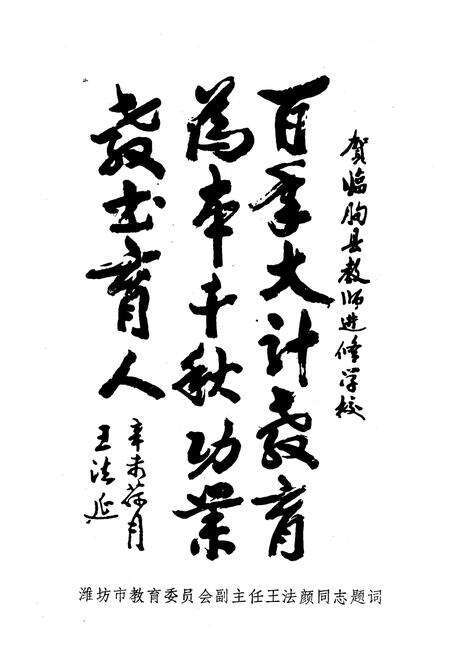 贺临朐县教师進修学校
百年大计教育
為本千秋功业
教书育人
辛未荷月
王法延
潍坊市教育委员会副主任王法颜同志题词